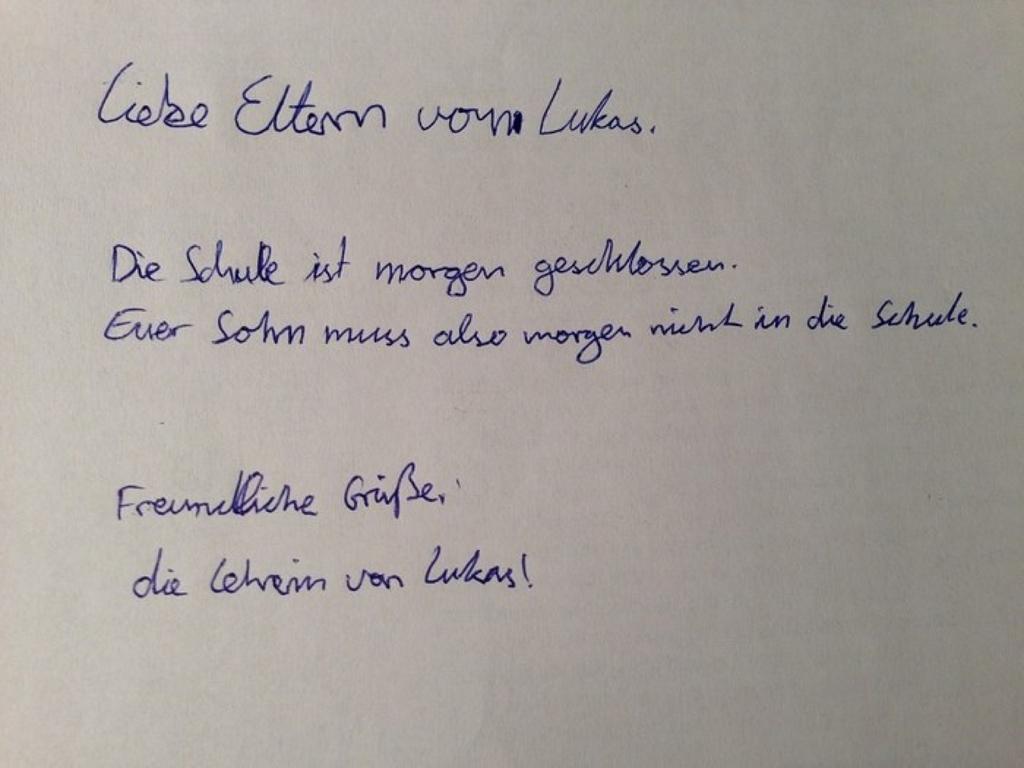 Liebe Eltern von Lukas.
Die Schule ist morgen geschlossen.
Euer Sohn muss also morgen nicht in die Schule.
Freundliche Grüße,
die Lehrerin von Lukas!